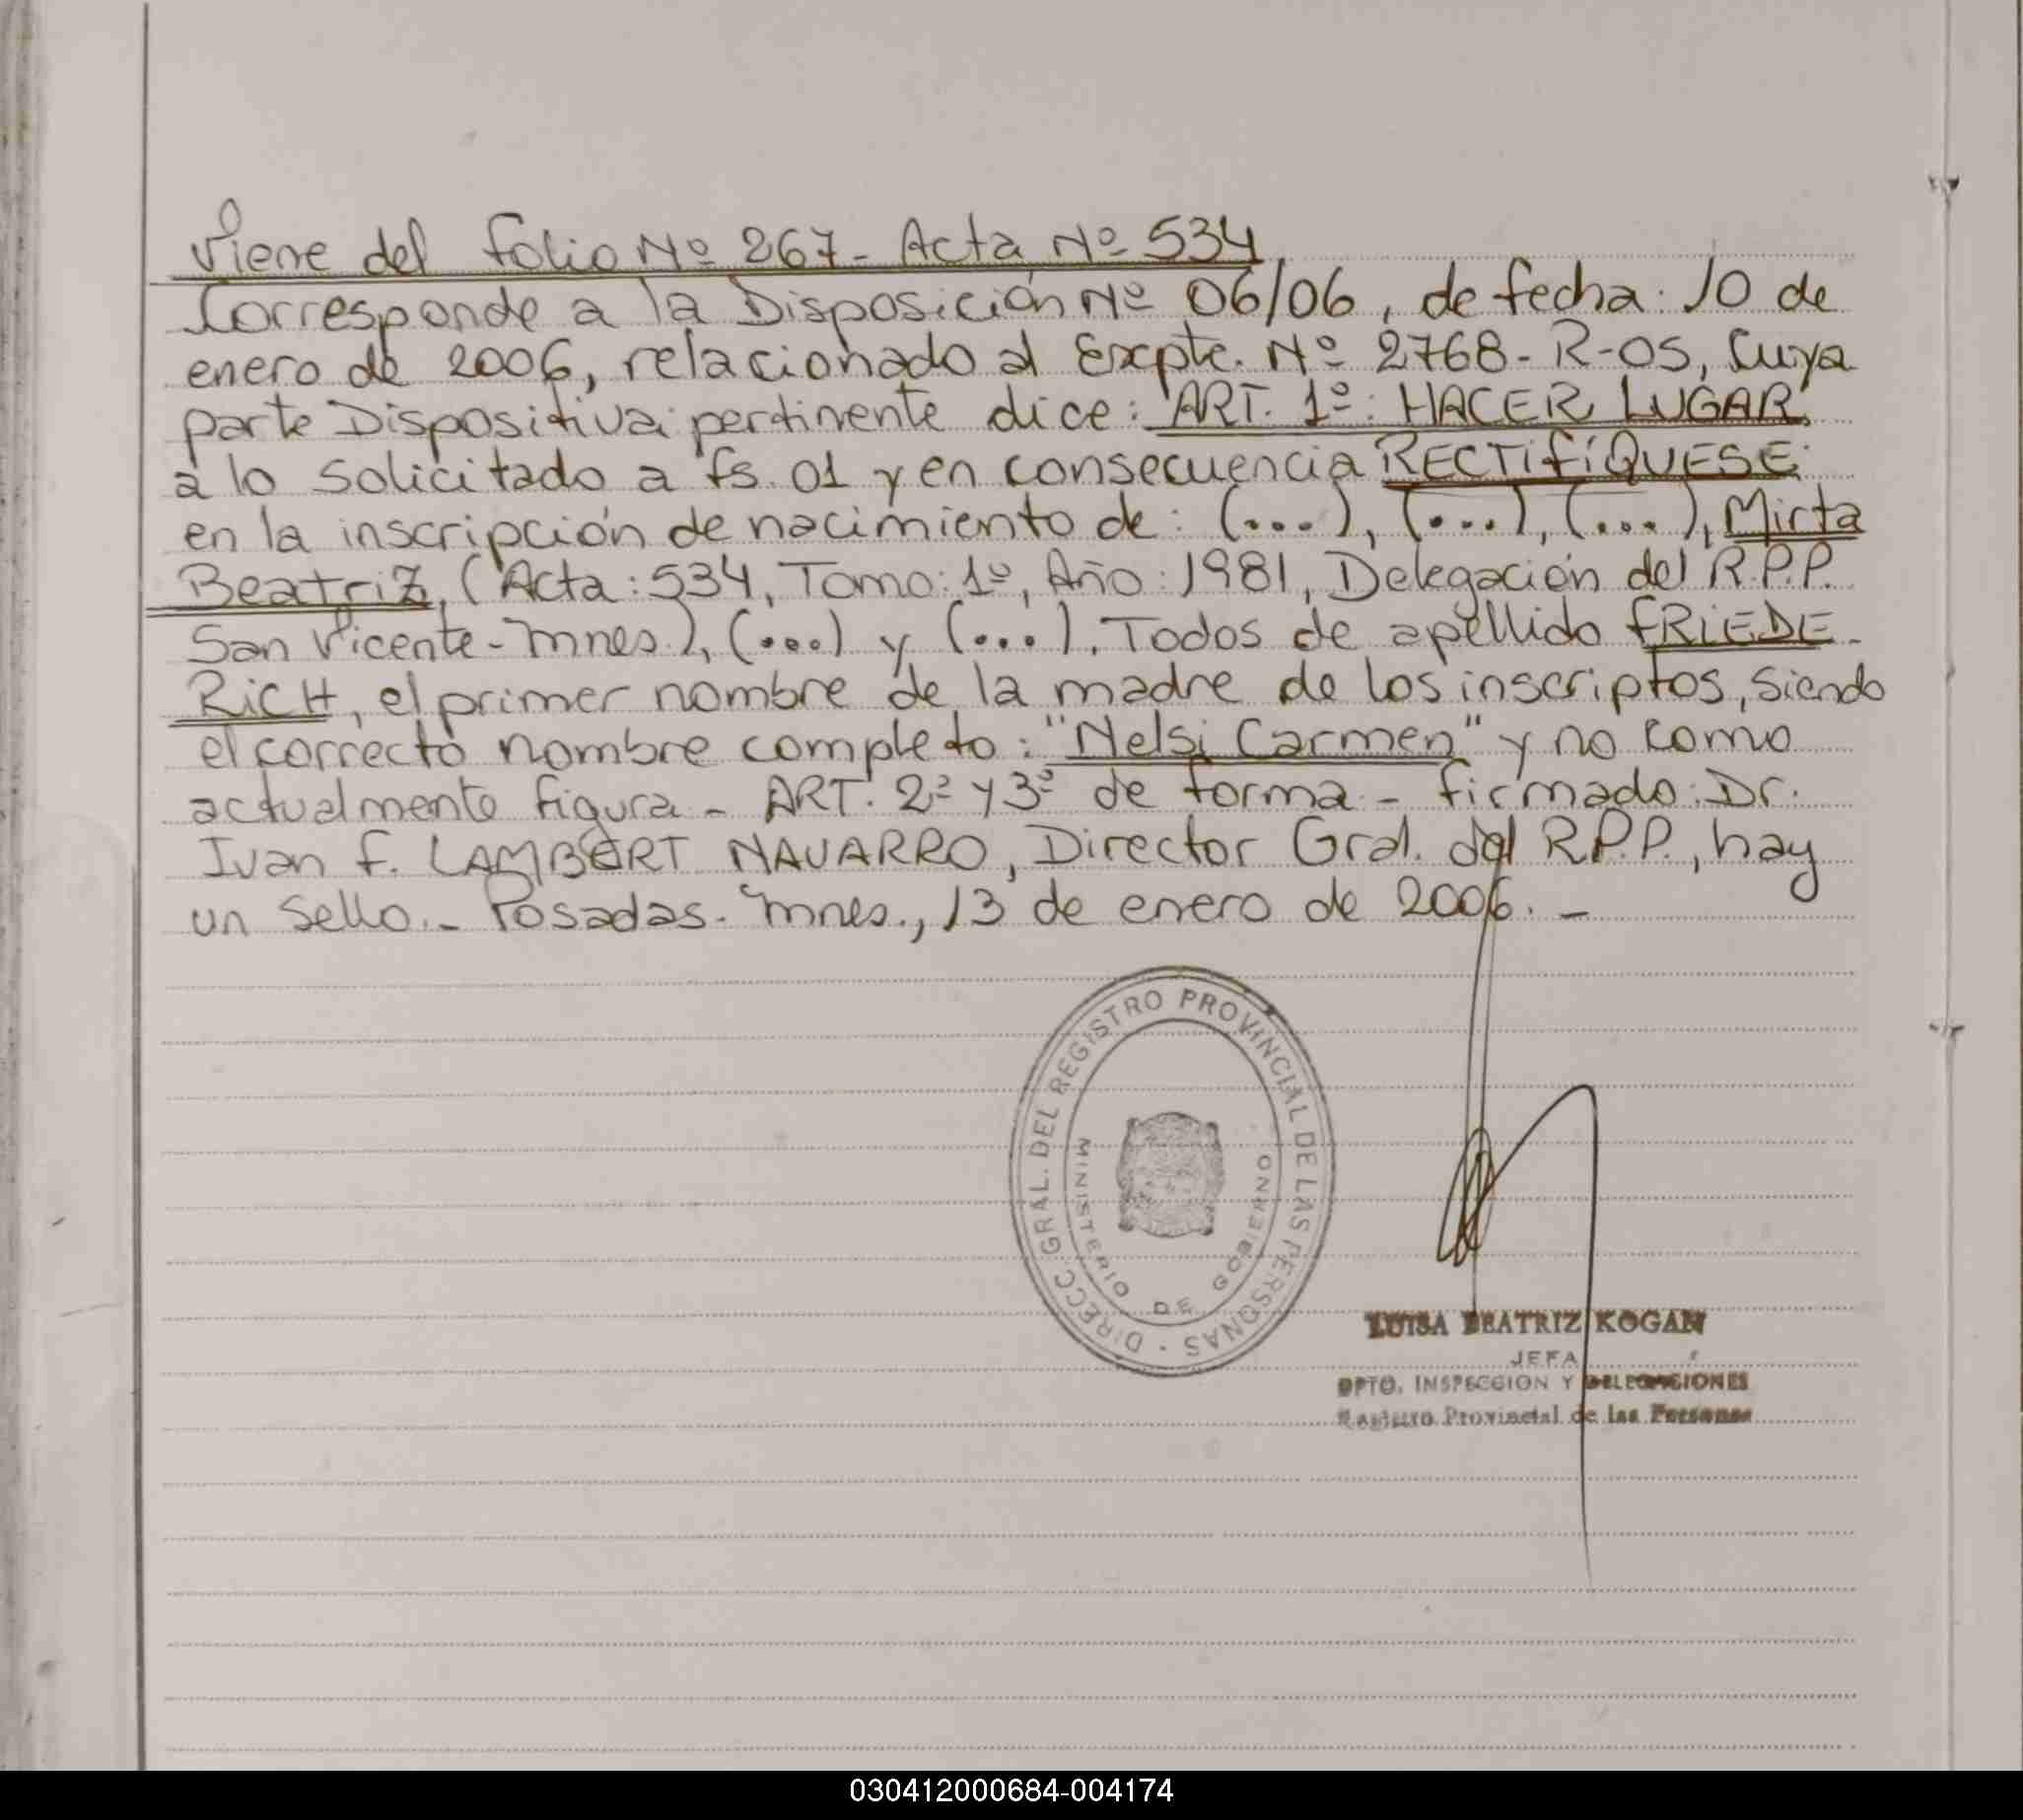 Viene del folio Nº 267 - Acta Nº 534
Corresponde a la Disposición Nº 06/06, de fecha: 10 de
enero de 2006, relacionado al Expte. Nº 2768-R-05, cuya
parte Dispositiva pertinente dice: ART. 1º: HACER LUGAR
a lo solicitado a fs. 01 y en consecuencia RECTIFÍQUESE
en la inscripción de nacimiento de: (...), (...), (...), Mirta
Beatriz, (Acta: 534, Tomo: 1º, Año: 1981, Delegación del R.P.P.
San Vicente - Mnes.), (...) y (...), Todos de apellido FRIEDE-
RICH, el primer nombre de la madre de los inscriptos, siendo
el correcto nombre completo: "Nelsi Carmen" y no como
actualmente figura - ART. 2º y 3º de forma - firmado: Dr.
Ivan F. LAMBERT NAVARRO, Director Gral. del R.P.P., hay
un sello.- Posadas - Mnes., 13 de enero de 2006. -
DIRECC. GRAL. DEL REGISTRO PROVINCIAL DE LAS PERSONAS
MINISTERIO DE GOBIERNO
LUISA BEATRIZ KOGAN
JEFA
DPTO. INSPECCION Y DELEGACIONES
Registro Provincial de las Personas
030412000684-004174